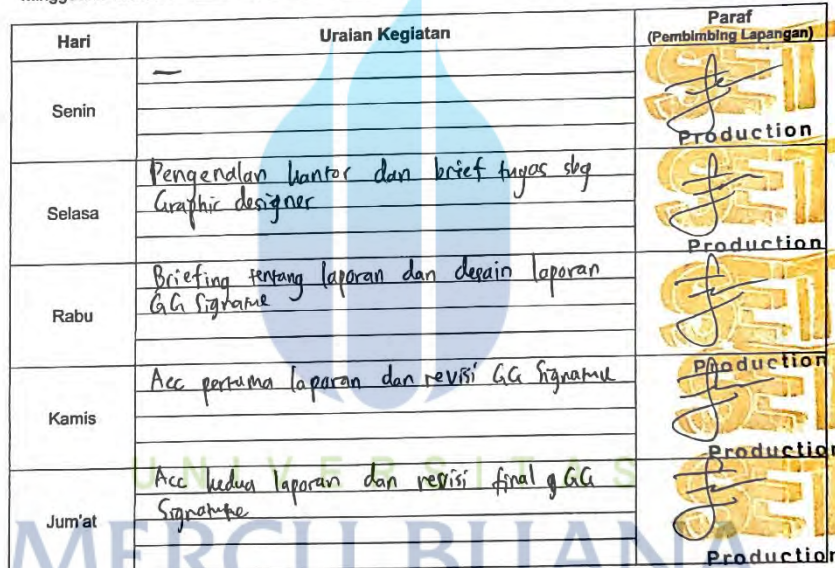 Hari Uraian Kegiatan Paraf
(Pembimbing Lapangan)
Senin
—
Production
Selasa
Pengenalan kantor dan brief tugas sbg
Graphic designer
Production
Rabu
Briefing tentang laporan dan desain laporan
GG Signature
Production
Kamis
Acc pertama laporan dan revisi GG Signature
Production
Jum'at
Acc kedua laporan dan revisi final GG
Signature
Production
UNIVERSITAS
MERCU BUANA